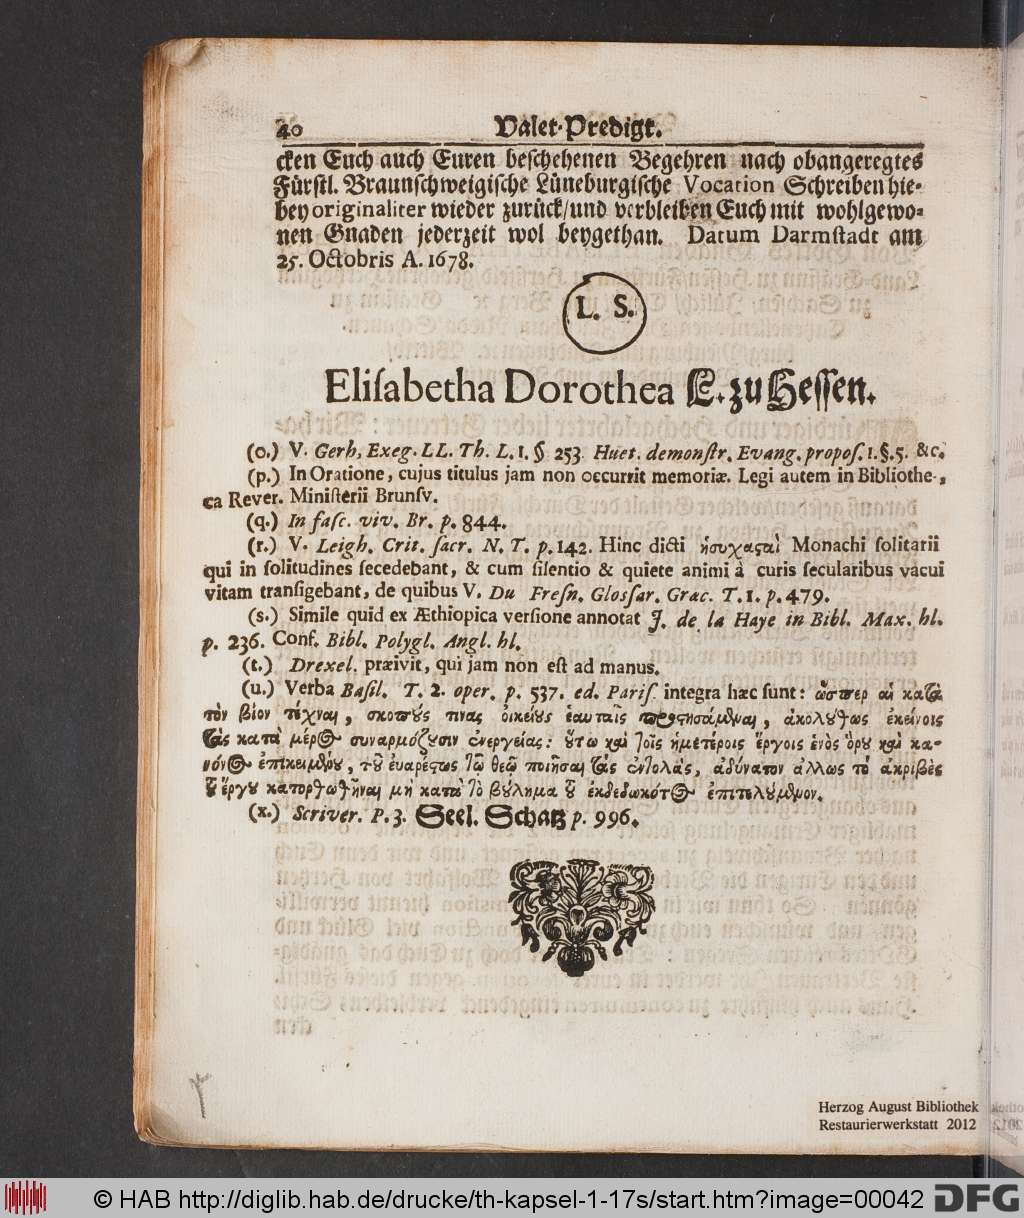 40 Valet-Predigt.
cken Euch auch Euren beschehenen Begehren nach obangeregtes
Fürstl. Braunschweigische Lüneburgische Vocation Schreiben hie-
bey originaliter wieder zurück/und verbleiben Euch mit wohlgewo-
nen Gnaden jederzeit wol beygethan. Datum Darmstadt am
25. Octobris A. 1678.
L. S.
Eliſabetha Dorothea L. zu Heſſen.
(o.) V. Gerh, Exeg. LL. Th. L. 1. § 253 Huet. demonſtr. Evang. propoſ. 1. §. 5. &c.
(p.) In Oratione, cujus titulus jam non occurrit memoriæ. Legi autem in Bibliothe-
ca Rever. Miniſterii Brunſv.
(q.) In faſc. viv. Br. p. 844.
(r.) V. Leigh. Crit. ſacr. N. T. p. 142. Hinc dicti ἡσυχαςαὶ Monachi ſolitarii
qui in ſolitudines ſecedebant, & cum ſilentio & quiete animi à curis ſecularibus vacui
vitam tranſigebant, de quibus V. Du Freſn. Gloſſar. Græc. T. 1. p. 479.
(s.) Simile quid ex Æthiopica verſione annotat J. de la Haye in Bibl. Max. hl.
p. 236. Conf. Bibl. Polygl. Angl. hl.
(t.) Drexel. præivit, qui jam non eſt ad manus.
(u.) Verba Baſil. T. 2. oper. p. 537. ed. Pariſ. integra hæc ſunt: ὥσπερ αἱ κατὰ
τὸν βίον τέχναι, σκοπούς τινας οἰκείυς ἑαυταῖς προςησάμεναι, ἀκολύθως ἐκείνοις
τὰς κατὰ μέρος συναρμόζυσιν ἐνεργείας: ὕτω καὶ τοῖς ἡμετέροις ἔργοις ἑνὸς ὅρυ καὶ κα-
νόνος ἐπικειμένυ, τῦ ἐυαρέςως τῷ θεῷ ποιῆσαι τὰς ἐντολὰς, ἀδύνατον ἄλλως τὸ ἀκριβὲς
τῦ ἔργυ κατορθωθῆναι μὴ κατὰ τὸ βύλημα τῦ ἐκδεδωκότος ἐπιτελύμενον.
(x.) Scriver. P. 3. Seel. Schatz p. 996.
Herzog August Bibliothek
Restaurierwerkstatt 2012
© HAB http://diglib.hab.de/drucke/th-kapsel-1-17s/start.htm?image=00042 DFG